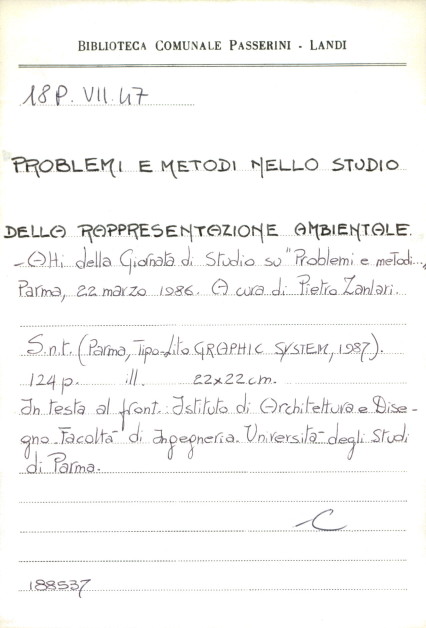 BIBLIOTECA COMUNALE PASSERINI - LANDI
18P. VII. 47
PROBLEMI E METODI NELLO STUDIO
DELLA RAPPRESENTAZIONE AMBIENTALE.
- Atti della Giornata di Studio su "Problemi e metodi...,
Parma, 22 marzo 1986. A cura di Pietro Zanlari.
S.n.t. (Parma, Tipo-Lito GRAPHIC SYSTEM, 1987).
124 p. ill. 22x22 cm.
In testa al front.: Istituto di Architettura e Dise-
gno - Facoltà di Ingegneria. Università degli Studi
di Parma.
C
188537